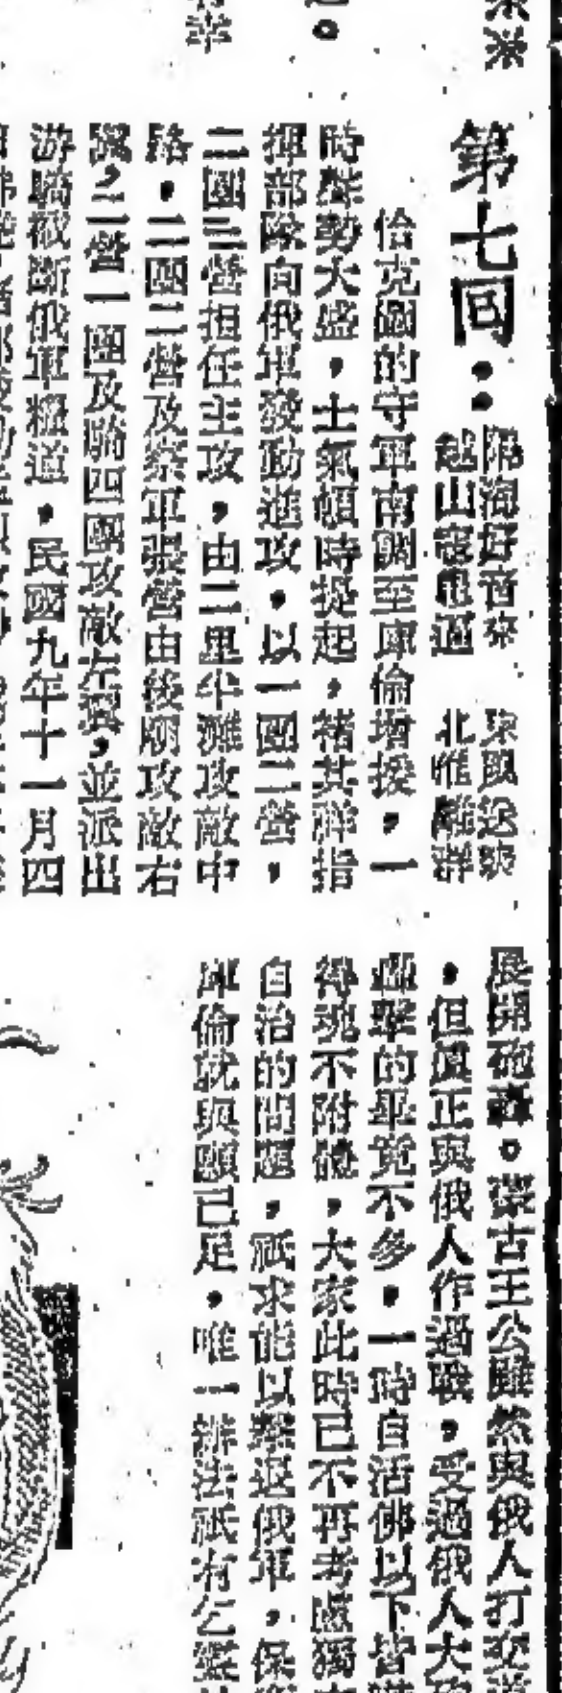 第七回：
隔海好音來 東風送爽
越山寇患逼 北雁離群
恰克圖的守軍南調至庫倫增援，一
時聲勢大盛，士氣頓時提起，褚其祥指
揮部隊向俄軍發動進攻，以一團二營，
二團三營担任主攻，由二里半灘攻敵中
路，二團二營及察軍張營由後廟攻敵右
翼，二營一團及騎四團攻敵左翼，並派出
游騎截斷俄軍糧道，民國九年十一月四
展開砲轟。蒙古王公雖然與俄人打交道
，但眞正與俄人作過戰，受過俄人大砲
轟擊的畢竟不多，一時自活佛以下皆嚇
得魂不附體，大家此時已不再考慮獨立
自治的問題，祇求能以擊退俄軍，保衛
庫倫就與願已足，唯一辦法祇有乞援